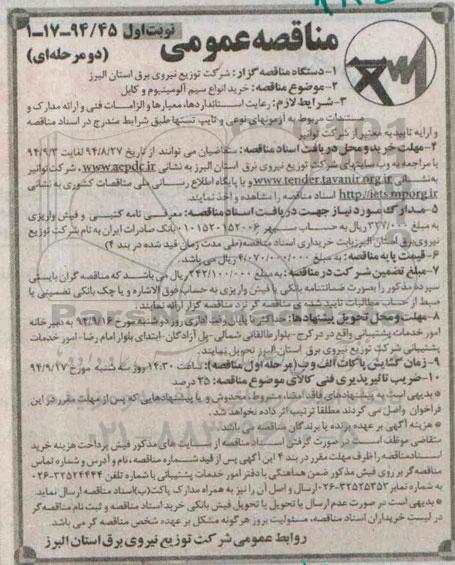 مناقصه عمومی نوبت اول ۹۴/۴۵-۱۷-۱
(دو مرحله‌ای)
۱-دستگاه مناقصه گزار: شرکت توزیع نیروی برق استان البرز
۲-موضوع مناقصه: خرید انواع سیم آلومینیوم و کابل
۳-شرایط لازم: رعایت استانداردها، معیارها و الزامات فنی و ارائه مدارک و
مستندات مربوط به آزمونهای نوعی و تایپ تستها طبق شرایط مندرج در اسناد مناقصه
و ارایه تاییدیه معتبر از شرکت توانیر
۴-مهلت خرید و محل دریافت اسناد مناقصه: متقاضیان می توانند از تاریخ ۹۴/۸/۲۷ لغایت ۹۴/۹/۳
با مراجعه به وب سایتهای شرکت توزیع نیروی برق استان البرز به نشانی www.acpdc.ir، شرکت توانیر
به نشانی www.tender.tavanir.org.ir و یا پایگاه اطلاع رسانی ملی مناقصات کشوری به نشانی
http://iets.mporg.ir اسناد مناقصه را مشاهده و اخذ نمایند.
۵-مدارک مورد نیاز جهت دریافت اسناد مناقصه: معرفی نامه کتبی و فیش واریزی
به مبلغ ۳۲۷/۰۰۰ ریال به حساب سپهر ۰۱۰۱۵۲۰۱۵۲۰۰۶ بانک صادرات ایران به نام شرکت توزیع
نیروی برق استان البرز بابت خریداری اسناد مناقصه (طی مدت زمان قید شده در بند ۴)
۶-قیمت پایه مناقصه: به مبلغ ۴/۰۷۰/۰۰۰/۰۰۰ ریال می باشد.
۷-مبلغ تضمین شرکت در مناقصه: به مبلغ ۲۴۲/۱۰۰/۰۰۰ ریال می باشد که مناقصه گران بایستی
سپرده مذکور را بصورت ضمانتنامه بانکی یا فیش واریزی به حساب فوق الاشاره و یا چک بانکی تضمینی یا
ضبط از حساب مطالبات تایید شده ی مناقصه گر نزد مناقصه گزار ارائه نمایند.
۸-مهلت و محل تحویل پیشنهادها: حداکثر تا پایان وقت اداری روز دوشنبه مورخ ۹۴/۹/۱۶ به دبیرخانه
امور خدمات پشتیبانی واقع در کرج-بلوار طالقانی شمالی-پل آزادگان-ابتدای بلوار امام رضا-امور خدمات
پشتیبانی شرکت توزیع نیروی برق استان البرز تحویل نمایند.
۹-زمان گشایش پاکات الف و ب (مرحله اول مناقصه): ساعت ۱۴:۳۰ روز سه شنبه مورخ ۹۴/۹/۱۷
۱۰-ضریب تاثیرپذیری فنی کالای موضوع مناقصه: ۳۵ درصد
* بدیهی است به پیشنهادهای فاقد امضا، مشروط، مخدوش و یا پیشنهادهایی که پس از مهلت مقرر در این
فراخوان واصل می گردند مطلقا ترتیب اثر داده نخواهد شد.
* هزینه آگهی بر عهده برنده یا برندگان مناقصه می باشد.
متقاضی موظف است در صورت گرفتن اسناد مناقصه از سایت های مذکور فیش پرداخت هزینه خرید
اسناد مناقصه را ظرف مهلت مقرر در بند ۴ این آگهی پس از قید شماره مناقصه، نام و آدرس و شماره تماس
مناقصه گر بر روی فیش مذکور ضمن هماهنگی با دفتر امور خدمات پشتیبانی با شماره تلفن ۳۲۵۲۴۴۴۴-۰۲۶
به شماره نمابر ۳۲۵۲۵۳۵۳-۰۲۶ ارسال و اصل آن را نیز به همراه مدارک پاکت (ب) اسناد مناقصه ارسال نماید.
* بدیهی است در صورت عدم ارسال یا تحویل یا تحویل فیش بانکی خرید اسناد مناقصه و ثبت نام مناقصه گر
در لیست خریداران اسناد مناقصه، مسئولیت بروز هر گونه مشکل بر عهده شخص مناقصه گر می باشد.
روابط عمومی شرکت توزیع نیروی برق استان البرز